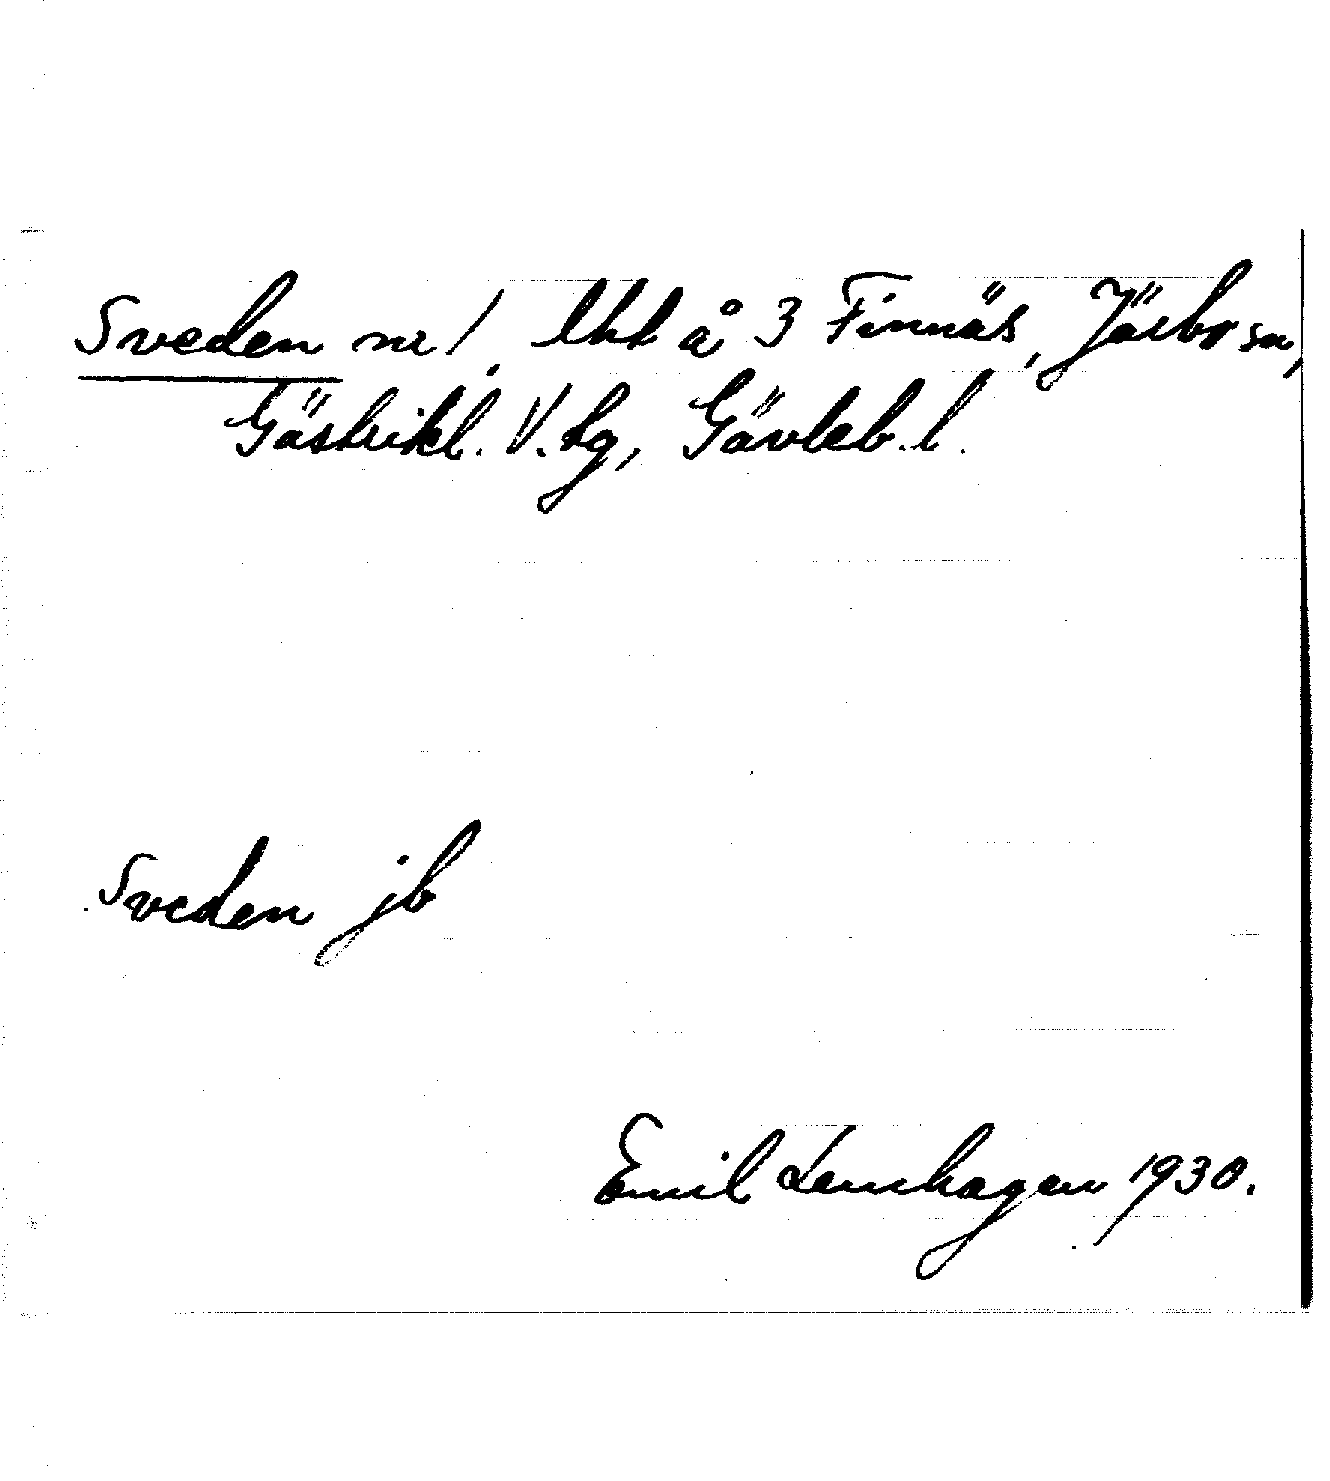 Sveden nr 1, lht å 3 Finnäs, Järbo sn,
Gästrikl. V. tg, Gävleb. l.
Sveden jb
Emil Lenhagen 1930.